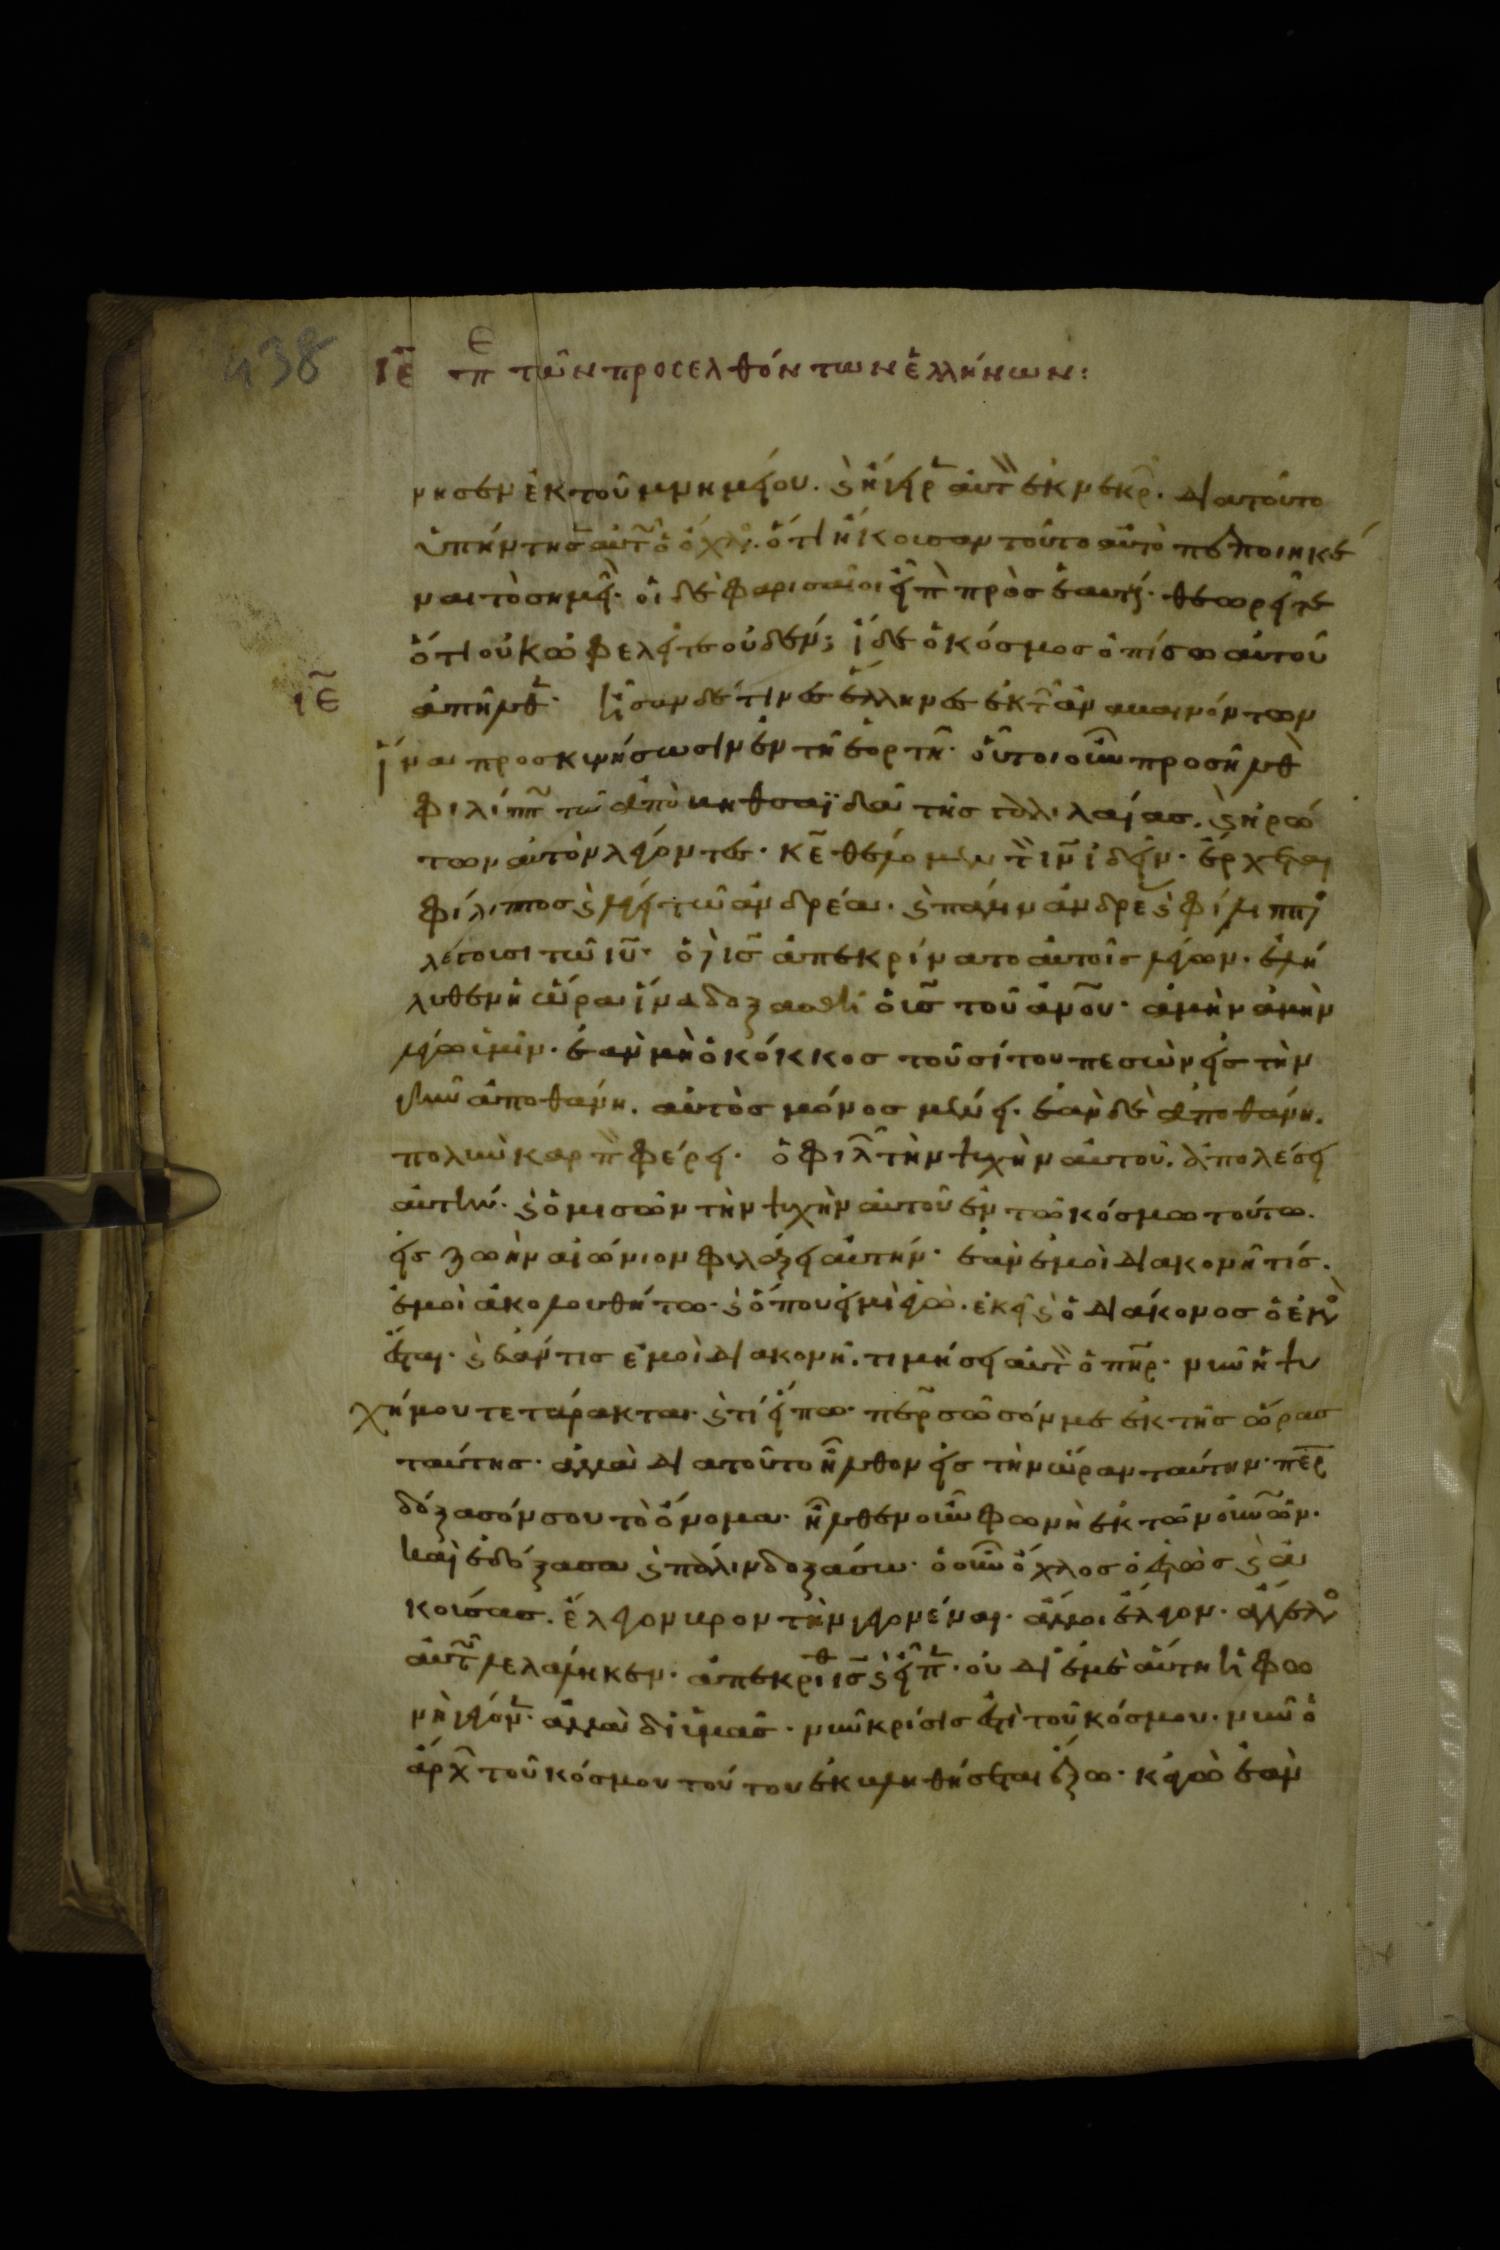 438
ιε̅ πε τῶν προσελθόντων ἑλλήνων:
νησεν ἐκ τοῦ μνημείου. ϗ ἤγειρ αὐτ ἐκ νεκρ. διατοῦτο
ὑπήντησ αὐτ ὁ ὄχλο. ὅτι ἤκουσαν τοῦτο αὐτὸ πεποιηκέ
ναι τὸ σημεῖ. οἱ δὲ φαρισαῖοι εἶπ πρὸς ἑαυτ. θεωρεῖτε
ὅτι οὐκ ὠφελεῖτε οὐδέν; ἴδε ὁ κόσμος ὀπίσω αὐτοῦ
ιε̅ ἀπῆλθ. ἦσαν δέ τινες ἕλληνες ἐκ τ ἀναβαινόντων
ἵνα προσκυνήσωσιν ἐν τῆ ἑορτῆ. οὗτοι οὖν προσῆλθ
φιλίππ τῶ ἀπὸ βηθσαϊδὰ τῆς γαλιλαίας. ϗ ἠρώ
των αὐτὸν λέγοντες. κε̅ θέλομεν τ ιν̅ ἰδεῖν. ἔρχεται
φίλιππος ϗ λέγει τῶ ἀνδρέα. ϗ πάλιν ἀνδρέ ϗ φίλιππο
λέγουσι τῶ ιυ̅. ὁ δὲ ισ̅ ἀπεκρίνατο αὐτοῖς λέγων. ἐλή
λυθεν ἡ ὥρα ἵνα δοξασθῆ ὁ υισ̅ τοῦ ἀνου̅. ἀμὴν ἀμὴν
λέγω ὑμῖν. ἐὰν μὴ ὁ κόκκος τοῦ σίτου πεσὼν εἰς τὴν
γῆν ἀποθάνη. αὐτὸς μόνος μένει. ἐὰν δὲ ἀποθάνη.
πολὺν καρπ φέρει. ὁ φιλ τὴν ψυχὴν αὐτοῦ. ἀπολέσει
αὐτήν. ϗ ὁ μισῶν τὴν ψυχὴν αὐτοῦ ἐν τῶ κόσμω τούτω.
εἰς ζωὴν αἰώνιον φυλάξει αὐτήν. ἐὰν ἐμοὶ διακονῆ τίς.
ἐμοὶ ἀκολουθήτω. ϗ ὅπου εἰμὶ ἐγὼ. ἐκεῖ ϗ ὁ διάκονος ὁ ἐμὸ
ἔσται. ϗ ἐάν τις ἐμοὶ διακονῆ. τιμήσει αὐτ ὁ πηρ̅. νῦν ἡ ψυ
χή μου τετάρακται. ϗ τί εἴπω. περ̅ σῶσόν με ἐκ τῆς ὥρας
ταύτης. ἀλλὰ διατοῦτο ἦλθον εἰς τὴν ὥραν ταύτην. περ̅
δόξασόν σου τὸ ὄνομα. ἦλθεν οὖν φωνὴ ἐκ τῶν οὐνῶν̅.
καὶ ἐδόξασα ϗ πάλιν δοξάσω. ὁ οὖν ὄχλος ὁ ἑστὼς ϗ ἀ
κούσας. ἔλεγον βροντὴν γεγονέναι. ἄλλοι ἔλεγον. ἄγγελο
αὐτ λελάληκεν. ἀπεκρίθ ισ̅ ϗ εἶπ. οὐ δι' ἐμὲ αὕτη ἡ φω
νὴ γέγον. ἀλλὰ δι' ὑμᾶς. νῦν κρίσις ἐστὶ τοῦ κόσμου. νῦν ὁ
ἄρχ τοῦ κόσμου τούτου ἐκβληθήσεται ἔξω. κἀγὼ ἐὰν